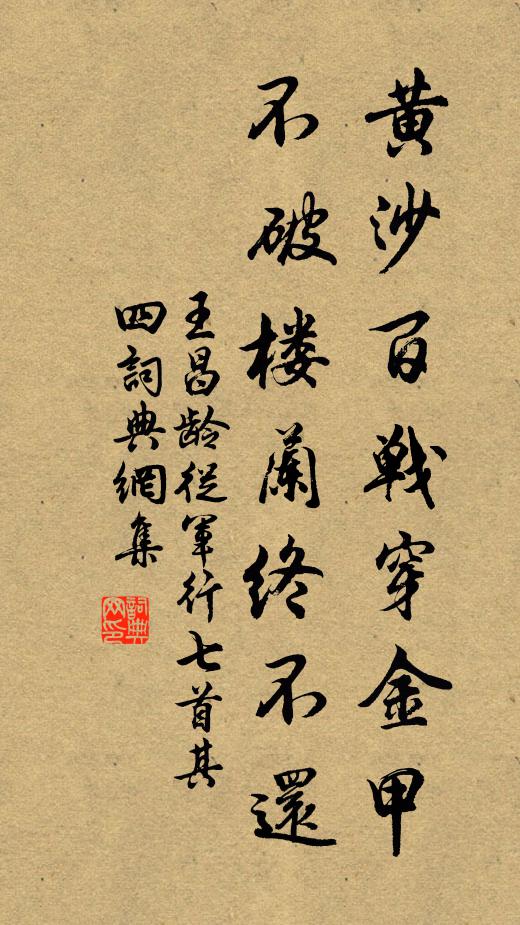 黄沙百戰穿金甲
不破楼蘭終不還
王昌齡從軍行七首其
四詞典網集
詞典网印